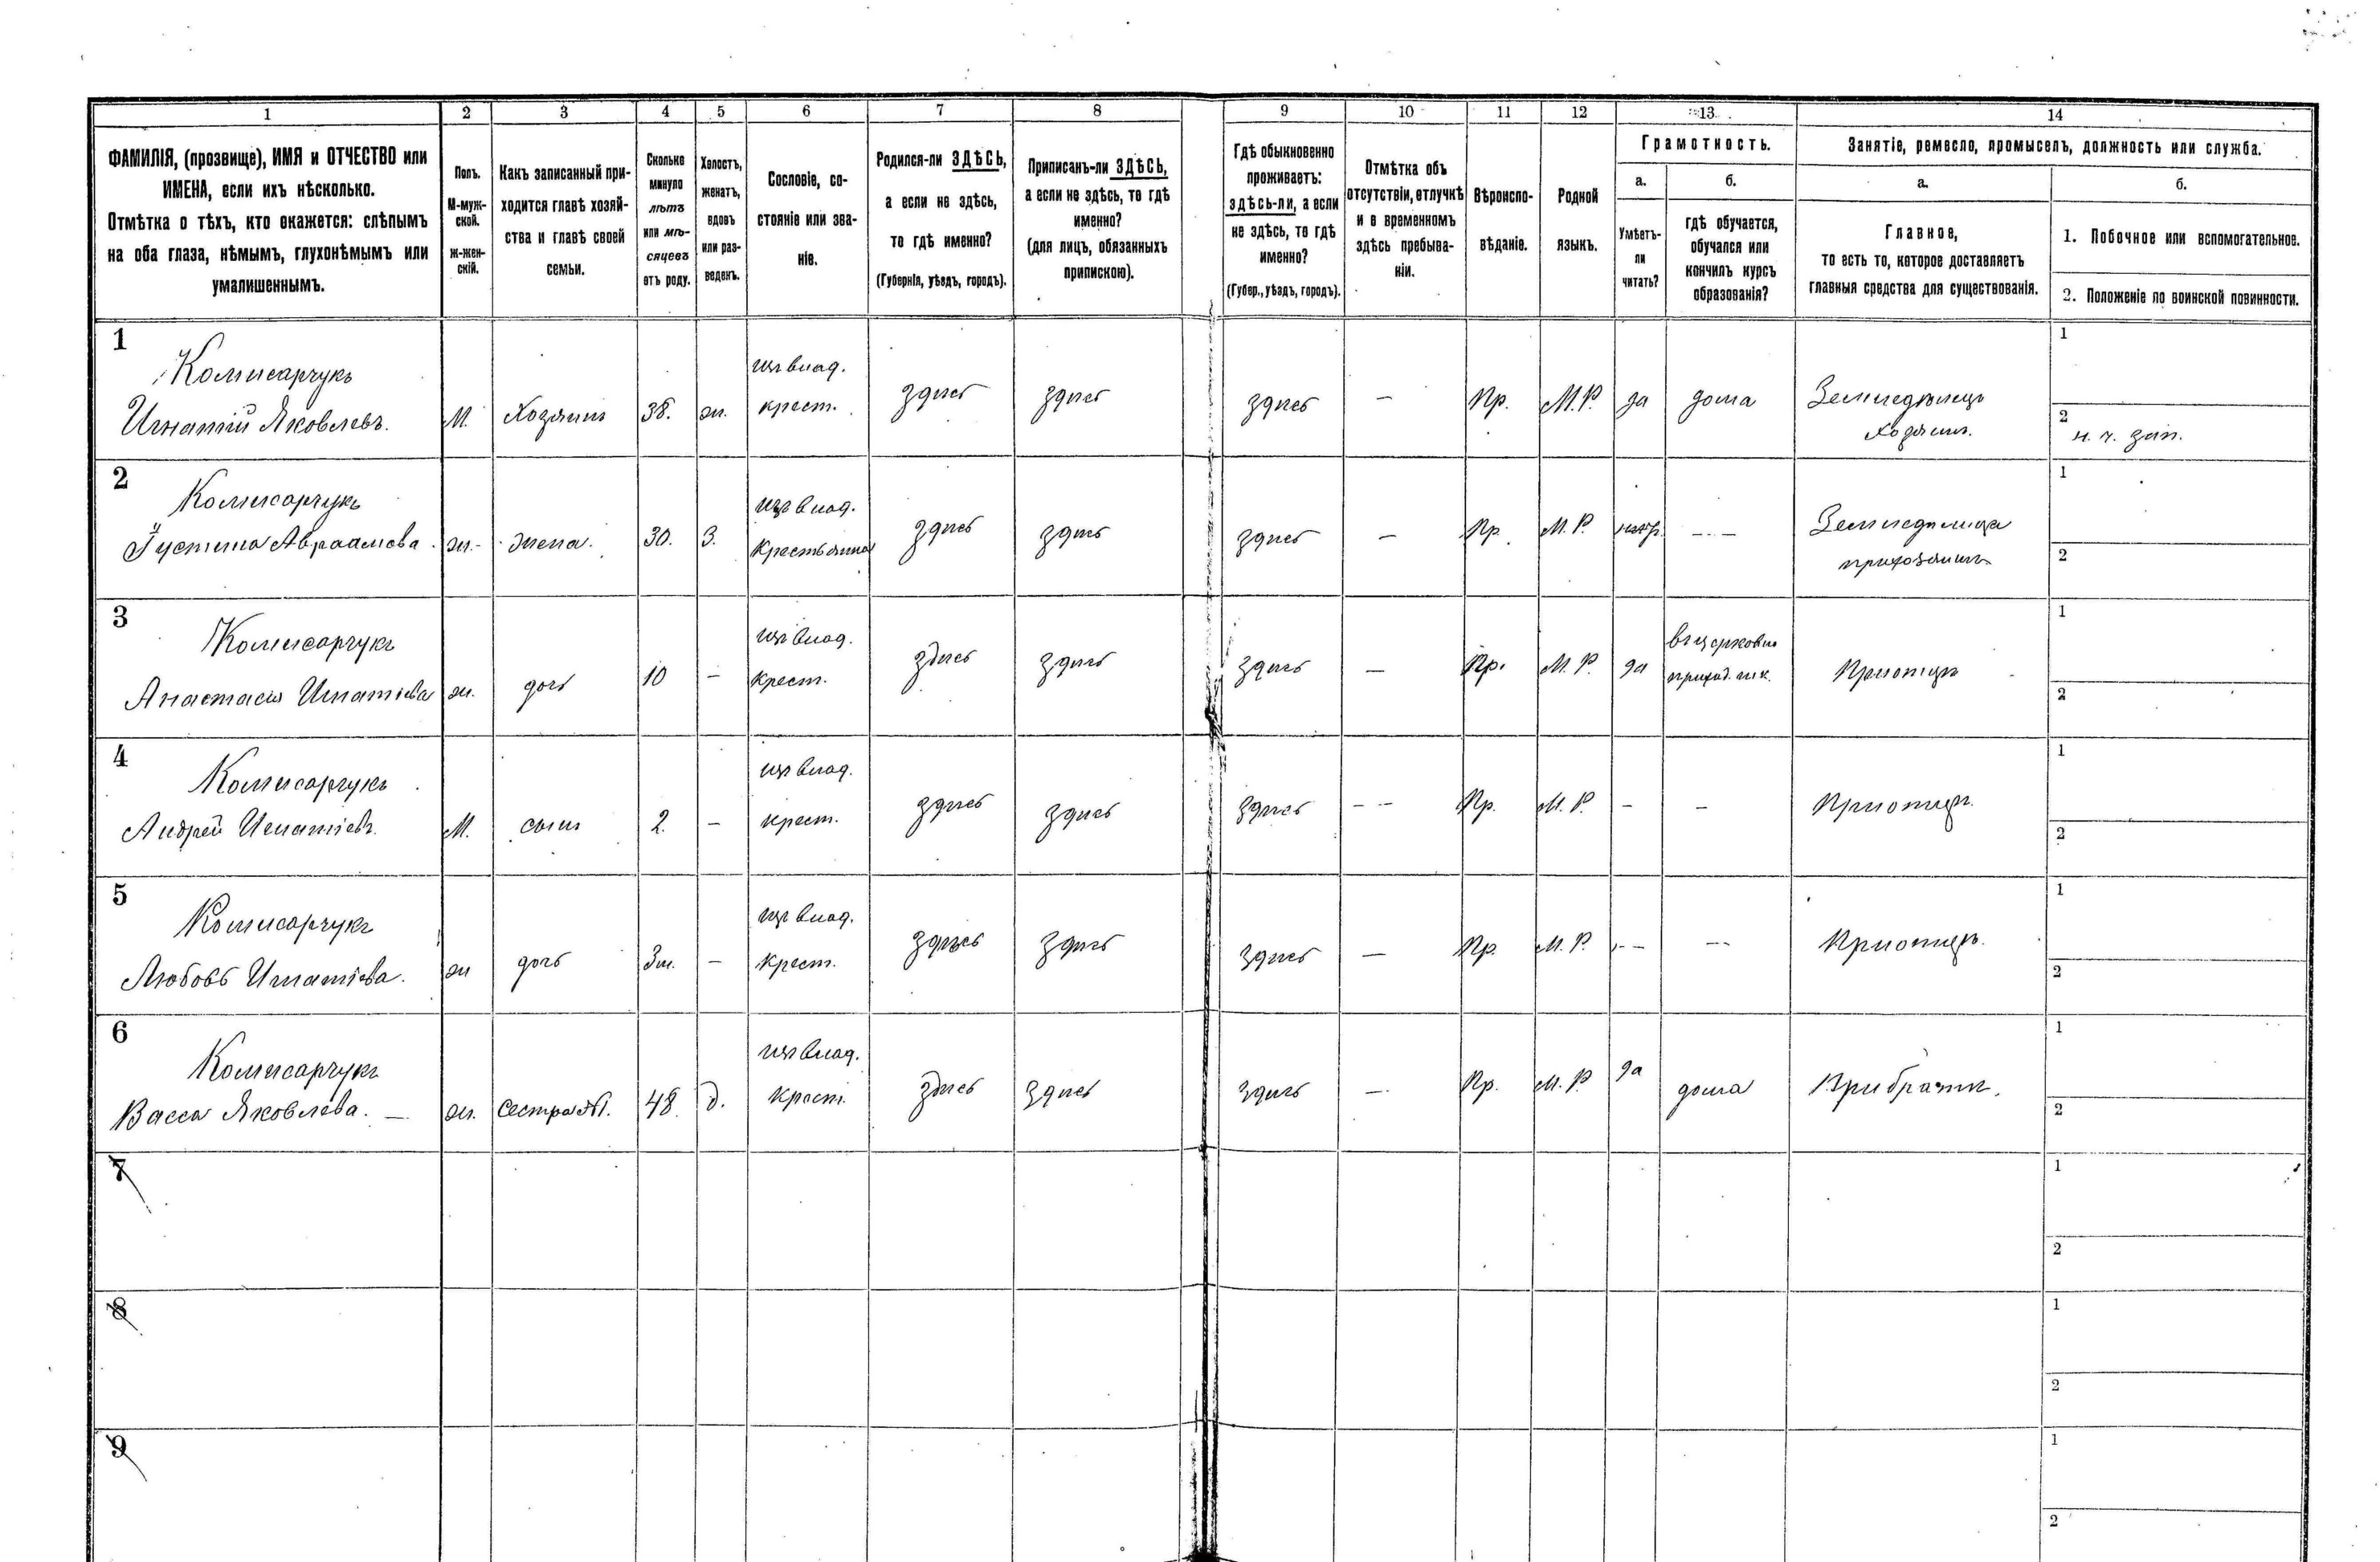 1 2 3 4 5 6 7 8 9 10 11 12 13 14
ФАМИЛІЯ, (прозвище), ИМЯ и ОТЧЕСТВО или
ИМЕНА, если ихъ нѣсколько.
Отмѣтка о тѣхъ, кто окажется: слѣпымъ
на оба глаза, нѣмымъ, глухонѣмымъ или
умалишеннымъ.
Полъ.
М-муж-
ской.
ж-жен-
скій.
Какъ записанный при-
ходится главѣ хозяй-
ства и главѣ своей
семьи.
Сколько
минуло
лѣтъ
или мѣ-
сяцевъ
отъ роду.
Холостъ,
женатъ,
вдовъ
или раз-
веденъ.
Сословіе, со-
стояніе или зва-
ніе.
Родился-ли ЗДѢСЬ,
а если не здѣсь,
то гдѣ именно?
(Губернія, уѣздъ, городъ).
Приписанъ-ли ЗДѢСЬ,
а если не здѣсь, то гдѣ
именно?
(для лицъ, обязанныхъ
припискою).
Гдѣ обыкновенно
проживаетъ:
здѣсь-ли, а если
не здѣсь, то гдѣ
именно?
(Губер., уѣздъ, городъ).
Отмѣтка объ
отсутствіи, отлучкѣ
и о временномъ
здѣсь пребыва-
ніи.
Вѣроиспо-
вѣданіе.
Родной
языкъ.
Грамотность.
а.
Умѣетъ-
ли
читать?
б.
гдѣ обучается,
обучался или
кончилъ курсъ
образованія?
Занятіе, ремесло, промыселъ, должность или служба.
а.
Главное,
то есть то, которое доставляетъ
главныя средства для существованія.
б.
1. Побочное или вспомогательное.
2. Положеніе по воинской повинности.
1
Комисарчукъ
Игнатій Яковлевъ.
М.
Хозяинъ
38.
ж.
изъ влад.
крест.
здѣсь
здѣсь
здѣсь
—
Пр.
М.Р.
да
дома
Земледѣлецъ
хозяинъ.
1
2
н. ч. зап.
2
Комисарчукъ
Іустина Авраамова.
ж.
жена.
30.
З.
изъ влад.
крестьянка
здѣсь
здѣсь
здѣсь
—
Пр.
М.Р.
— —
Земледѣлица
1
2
3
Комисарчукъ
Анастасія Игнатіева
ж.
дочь
10
—
изъ влад.
крест.
здѣсь
здѣсь
здѣсь
—
Пр.
М.Р.
да
въ церковно
приход. шк.
При отцѣ
1
2
4
Комисарчукъ
Андрей Игнатіевъ.
М.
сынъ
2.
—
изъ влад.
крест.
здѣсь
здѣсь
здѣсь
— —
Пр.
М.Р.
—
—
При отцѣ.
1
2
5
Комисарчукъ
Любовь Игнатіева.
ж
дочь
3м.
—
изъ влад.
крест.
здѣсь
здѣсь
здѣсь
—
Пр.
М.Р.
— —
— —
При отцѣ.
1
2
6
Комисарчукъ
Васса Яковлева. —
ж.
сестра №1.
48.
д.
изъ влад.
крест.
здѣсь
здѣсь
здѣсь
—
Пр.
М.Р.
да
дома
При братѣ.
1
2
7
1
2
8
1
2
9
1
2